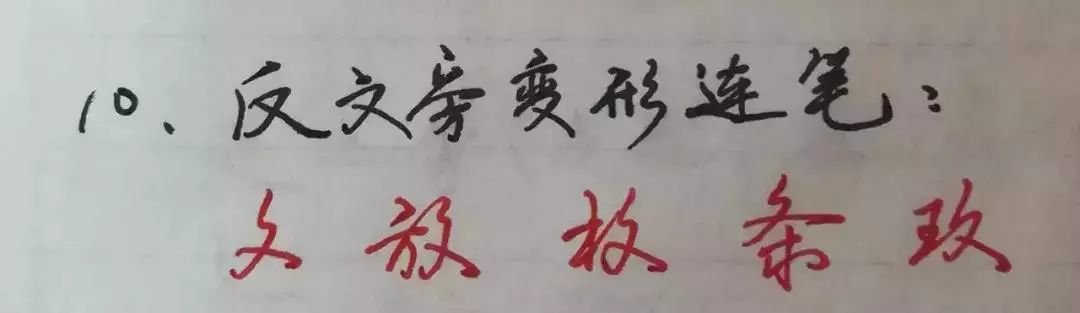 10、反文旁变形连笔：
攵 放 枚 条 玫